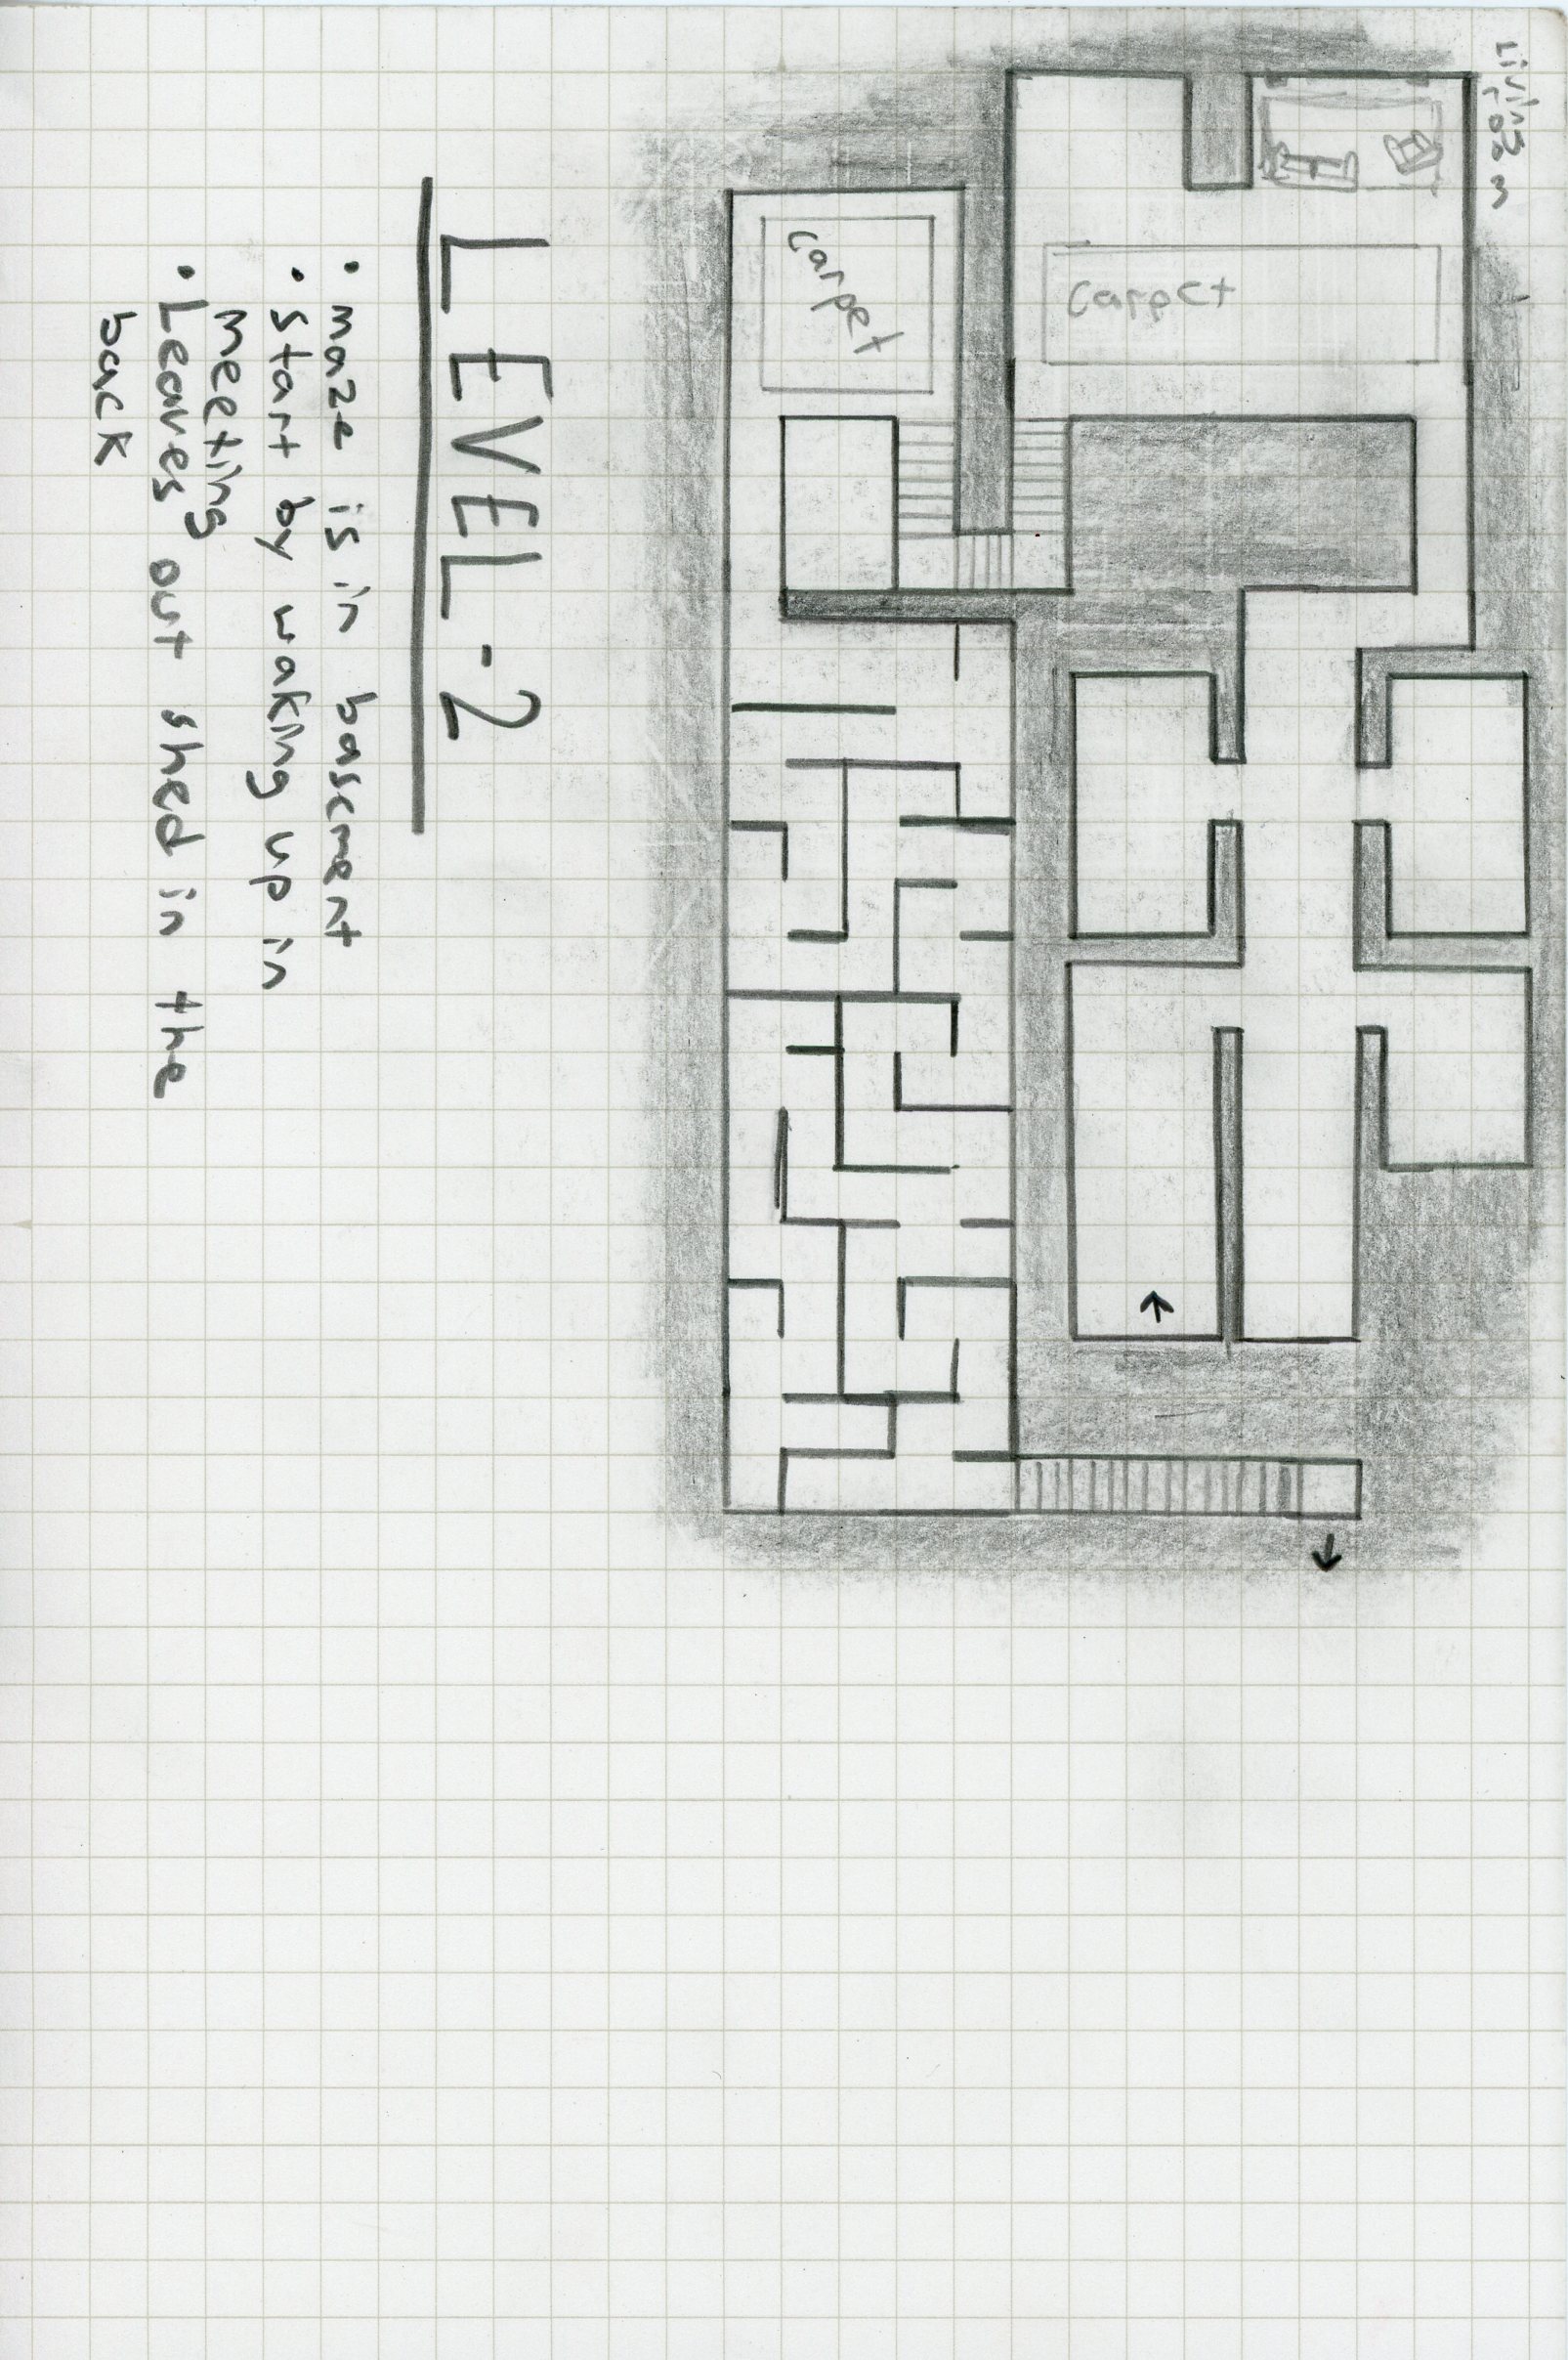 Living
room
carpet
carpet
LEVEL-2
• maze is in basement
• start by waking up in
meeting
• Leaves out shed in the
back